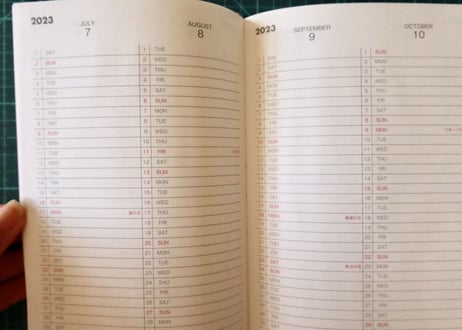 2023
JULY
7
1 SAT
2 SUN
3 MON
4 TUE
5 WED
6 THU
7 FRI
8 SAT
9 SUN
10 MON
11 TUE
12 WED
13 THU
14 FRI
15 SAT
16 SUN
17 MON 海の日
18 TUE
19 WED
20 THU
21 FRI
22 SAT
23 SUN
24 MON
25 TUE
26 WED
27 THU
28 FRI
AUGUST
8
1 TUE
2 WED
3 THU
4 FRI
5 SAT
6 SUN
7 MON
8 TUE
9 WED
10 THU
11 FRI
12 SAT
13 SUN
14 MON
15 TUE
16 WED
17 THU
18 FRI
19 SAT
20 SUN
21 MON
22 TUE
23 WED
24 THU
25 FRI
26 SAT
27 SUN
28 MON
2023
SEPTEMBER
9
1 FRI
2 SAT
3 SUN
4 MON
5 TUE
6 WED
7 THU
8 FRI
9 SAT
10 SUN
11 MON
12 TUE
13 WED
14 THU
15 FRI
16 SAT
17 SUN
18 MON 敬老の日
19 TUE
20 WED
21 THU
22 FRI
23 SAT 秋分の日
24 SUN
25 MON
26 TUE
27 WED
28 THU
OCTOBER
10
1 SUN
2 MON
3 TUE
4 WED
5 THU
6 FRI
7 SAT
8 SUN
9 MON
10 TUE
11 WED
12 THU
13 FRI
14 SAT
15 SUN
16 MON
17 TUE
18 WED
19 THU
20 FRI
21 SAT
22 SUN
23 MON
24 TUE
25 WED
26 THU
27 FRI
28 SAT